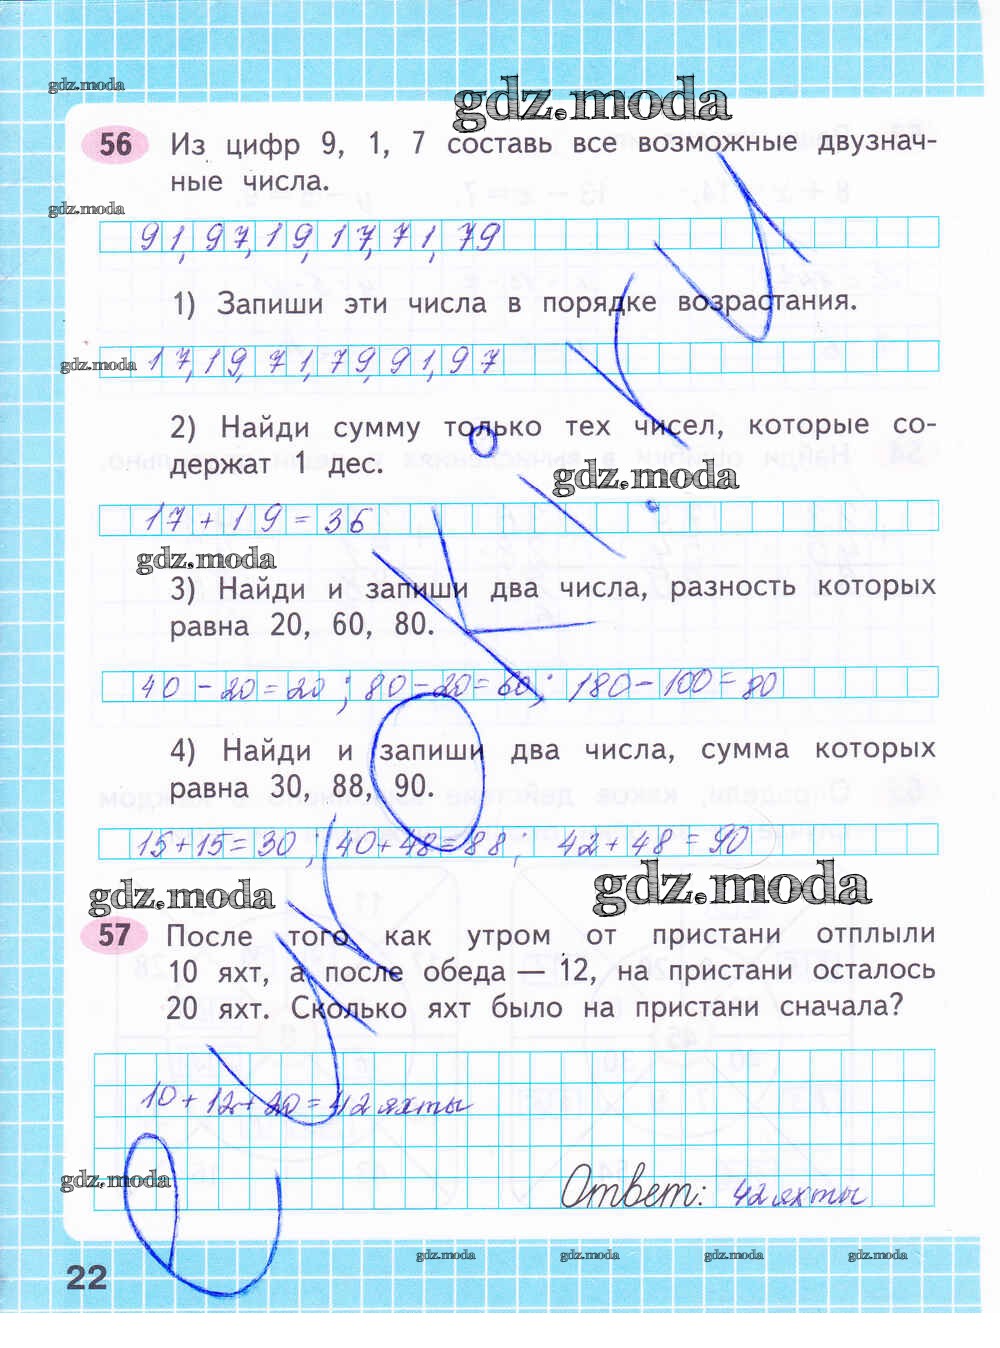 gdz.moda
gdz.moda
56 Из цифр 9, 1, 7 составь все возможные двузнач-
ные числа.
gdz.moda
91, 97, 19, 17, 71, 79
1) Запиши эти числа в порядке возрастания.
gdz.moda
17, 19, 71, 79, 91, 97
2) Найди сумму только тех чисел, которые со-
держат 1 дес.
gdz.moda
17 + 19 = 36
gdz.moda
3) Найди и запиши два числа, разность которых
равна 20, 60, 80.
40 - 20 = 20 ; 80 - 20 = 60 ; 180 - 100 = 80
4) Найди и запиши два числа, сумма которых
равна 30, 88, 90.
15 + 15 = 30 ; 40 + 48 = 88 ; 42 + 48 = 90
gdz.moda
gdz.moda
57 После того как утром от пристани отплыли
10 яхт, а после обеда — 12, на пристани осталось
20 яхт. Сколько яхт было на пристани сначала?
10 + 12 + 20 = 42 яхты
gdz.moda
Ответ: 42 яхты
gdz.moda gdz.moda gdz.moda gdz.moda
22